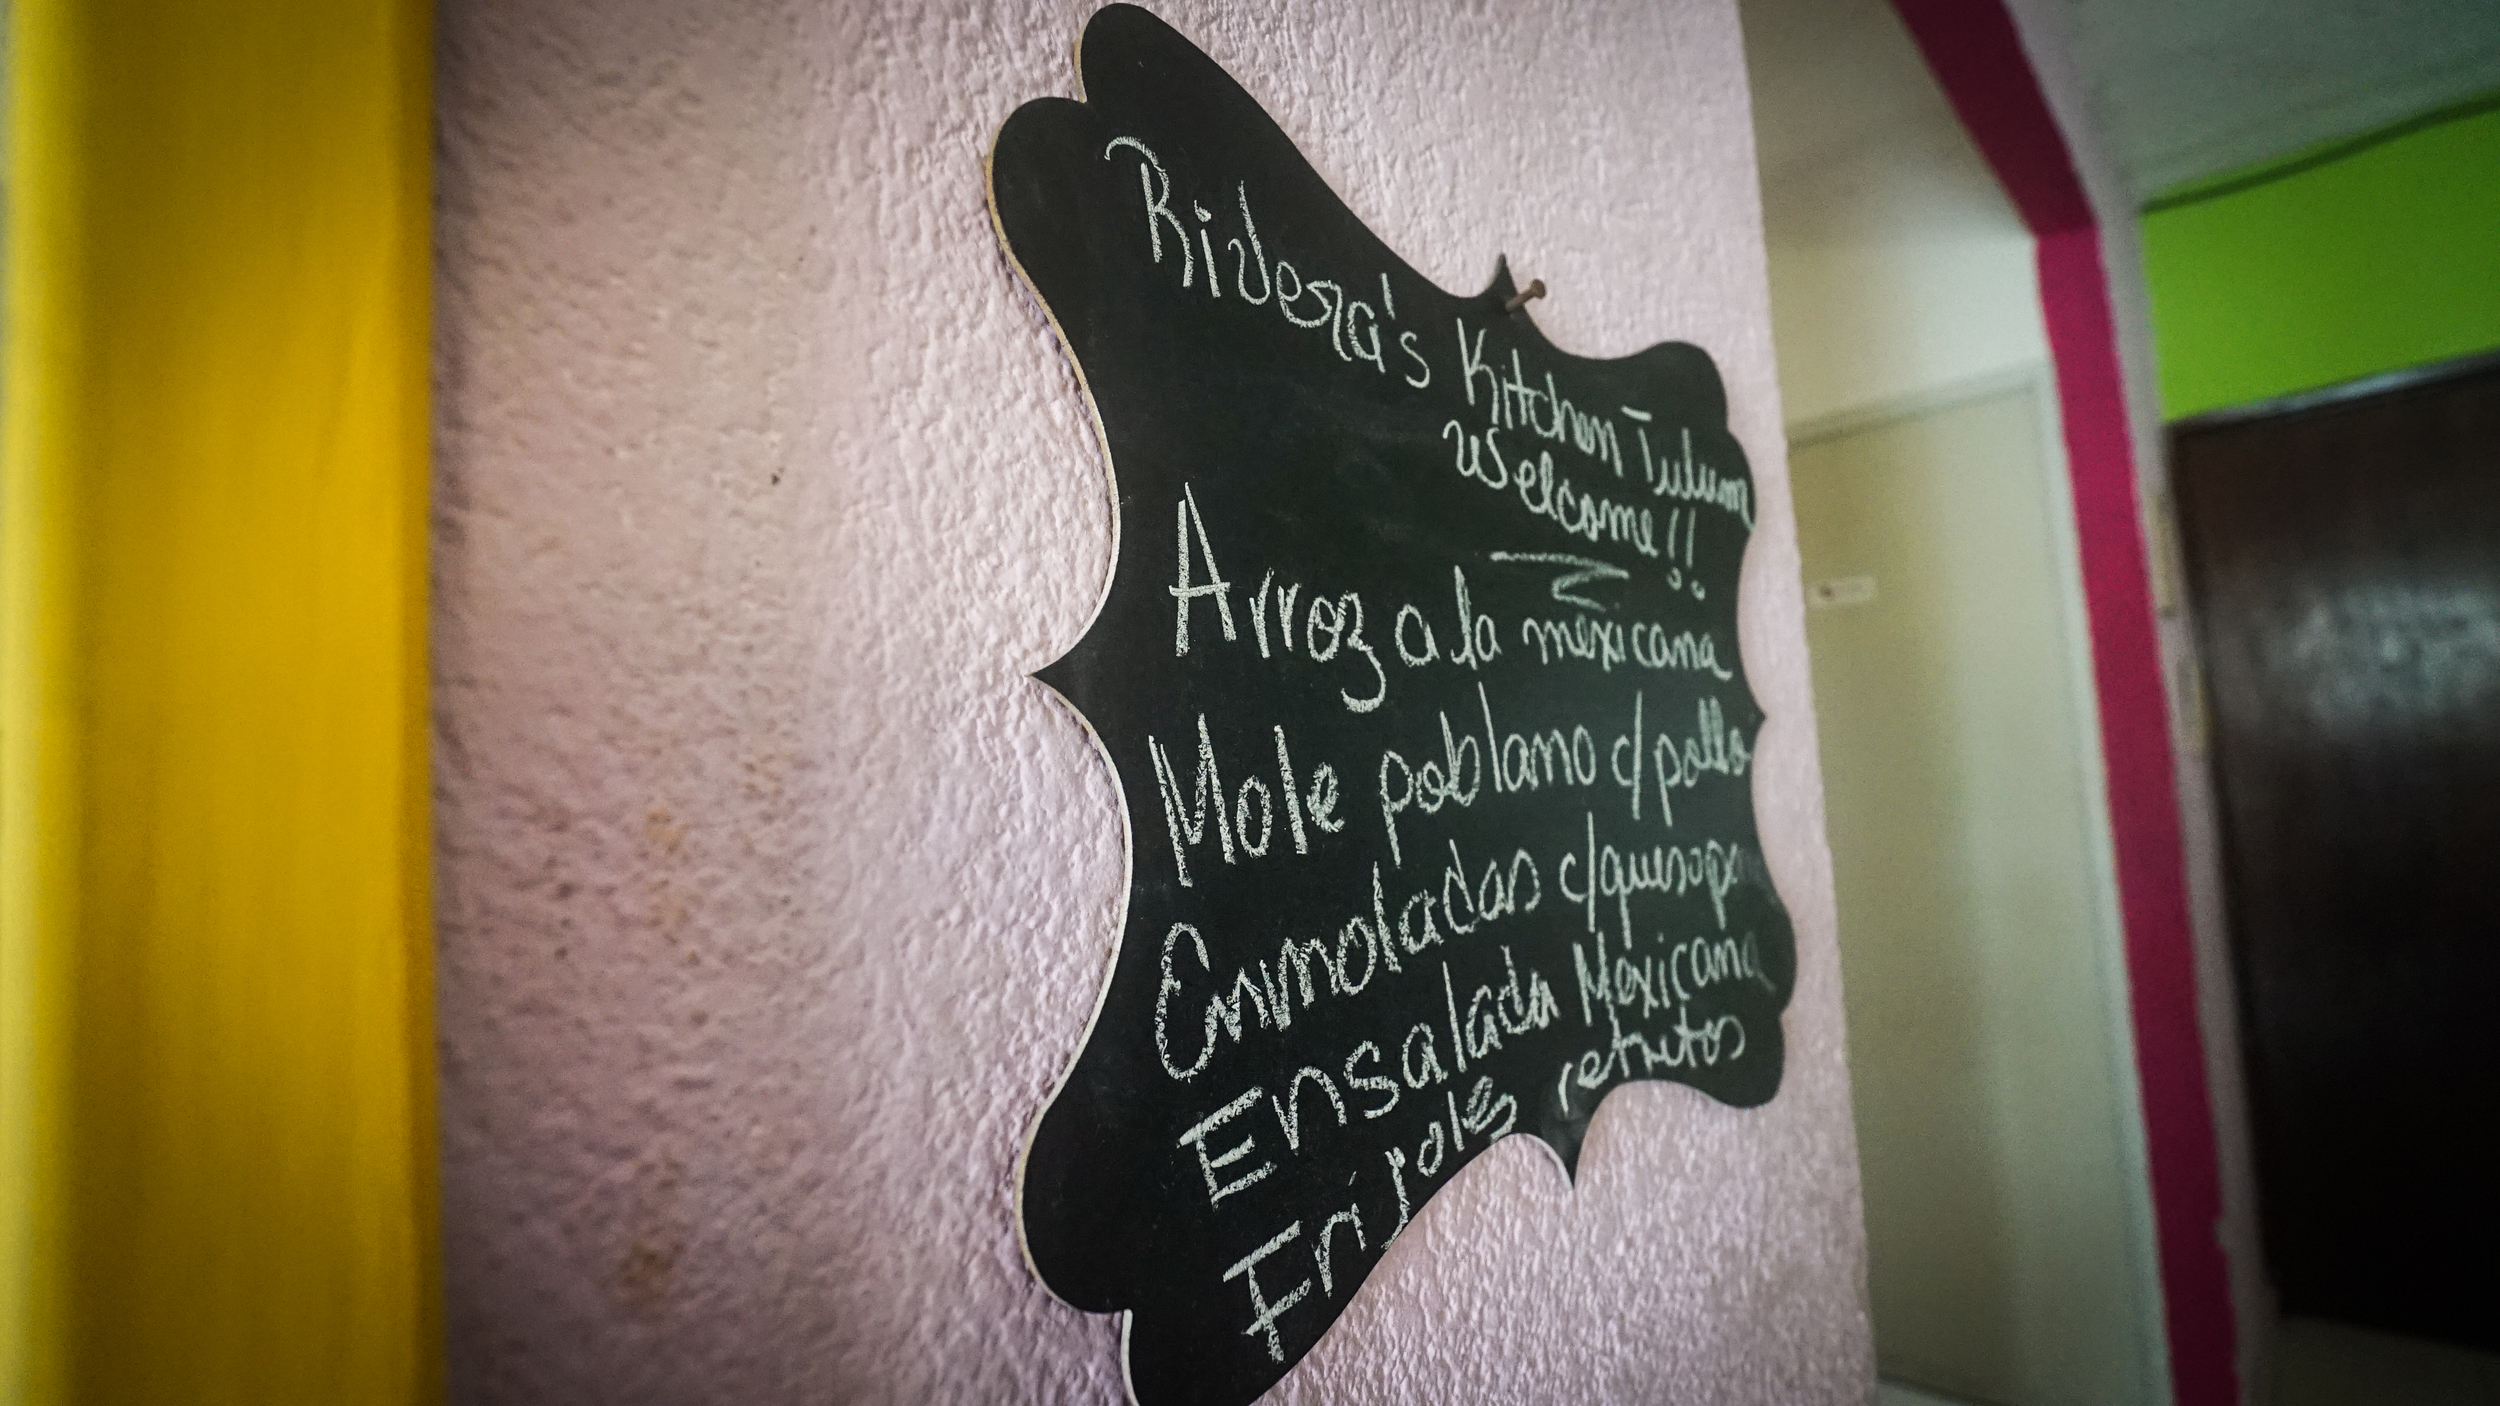 Rivera's Kitchen Tulum
Welcome!!
Arroz a la mexicana
Mole poblano c/pollo
Enmoladas c/queso
Ensalada Mexicana
Frijoles refritos